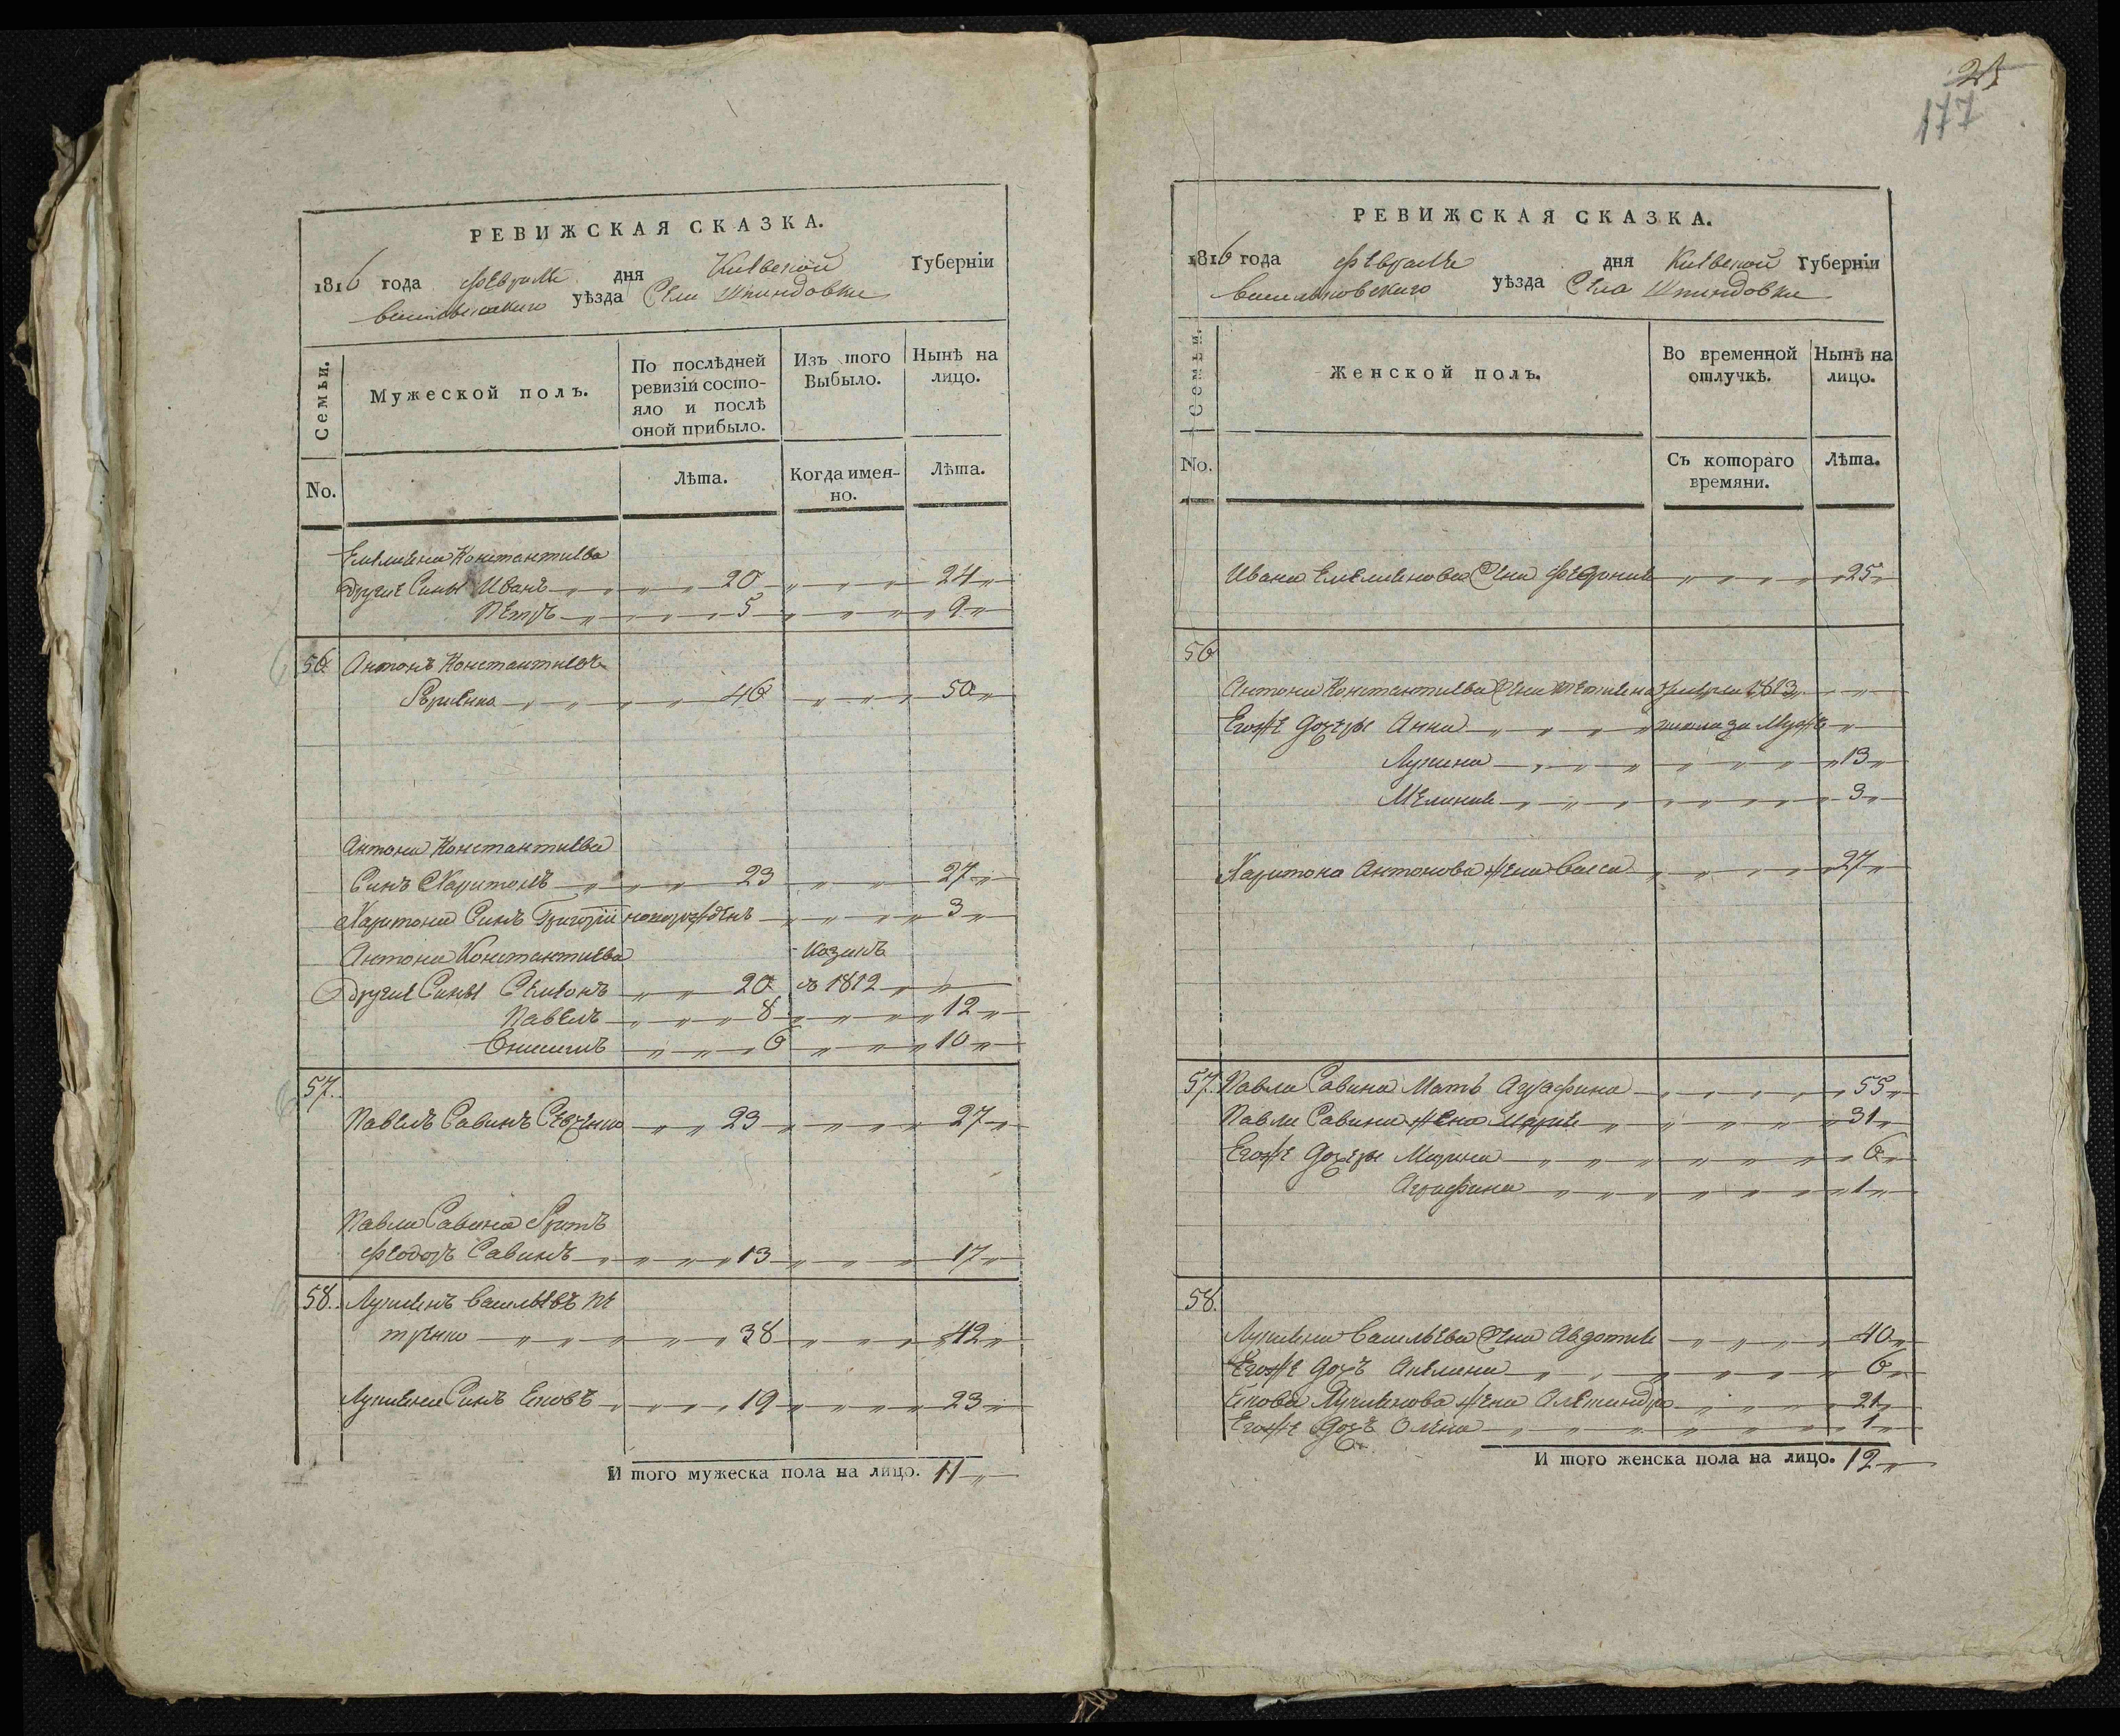 РЕВИЖСКАЯ СКАЗКА.
1816 года февраля дня Киевской Губерніи
уѣзда Села Шпиндовки
Семьи.
Мужеской полъ.
По послѣдней ревизіи состояло и послѣ оной прибыло.
Изъ того Выбыло.
Нынѣ на лицо.
No.
Лѣта.
Когда именно.
Лѣта.
Емелиена Константиева
другие Сины Иванъ 20 24
Петръ 5 9
56 Антонъ Константиевъ
46 50
Антона Константиева
Синъ Харитонъ 23 27
Харитона Синъ Григорій новорожденъ 3
Антона Константиева
другие Сины Семіонъ 20 въ 1812
Павелъ 8 12
Онисимъ 6 10
57.
Павелъ Савинъ 23 27
Павла Савина братъ
Феодоръ Савинъ 13 17
58. Лукиенъ Васильевъ Пе
тренко 38 42
Лукиена Синъ Ековъ 19 23
И того мужеска пола на лицо. 11
177
РЕВИЖСКАЯ СКАЗКА.
1816 года февраля дня Киевской Губерніи
Васильковского уѣзда Села Шпиндовки
Семьи.
Женской полъ.
Во временной отлучкѣ.
Нынѣ на лицо.
No.
Съ котораго времяни.
Лѣта.
Ивана Емелиенова Жена Феврония 25
56
Антона Константиева Жена 1813
Егоже дочеры Анна замужъ
Лукина 13
Мелания 3
Харитона Антонова жена Васса 27
57. Павла Савина Мать Агафина 55
Павла Савина жена Мария 31
Егоже дочеры Марина 6
Агафина 1
58.
Лукиена Васильева Жена Авдотия 40
Егоже дочъ Акелина 6
Екова Лукиенова жена Александра 21
Егоже дочъ Олена 1
И того женска пола на лицо. 12